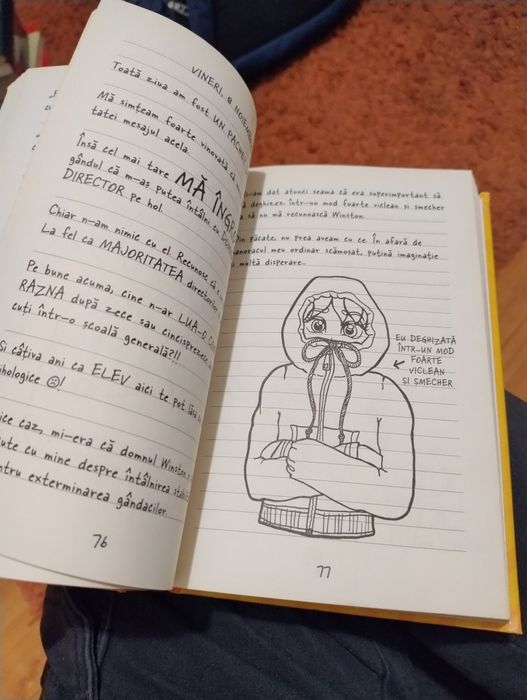 VINERI, 8
Toată ziua am fost UN PACHE
Mă simțeam foarte vinovată că
tatei mesajul acela.
Însă cel mai tare MĂ ÎNGR
gândul că m-aș putea întâlni cu
DIRECTOR pe hol.
Chiar n-am nimic cu el. Recunosc că
La fel ca MAJORITATEA directorilor
Pe bune acuma, cine n-ar LUA-O
RAZNA după zece sau cincisprezece
cuți într-o școală generală?!!
Și câțiva ani ca ELEV aici te pot lăsa
ihologice ☹!
ice caz, mi-era că domnul Winston
ute cu mine despre întâlnirea
ntru exterminarea gândacilor
76
-am dat atunci seama că era superimportant să
deghizez într-un mod foarte viclean și șmecher
a să nu mă recunoască Winston.
Din păcate, nu prea aveam cu ce. În afară de
hanoracul meu ordinar scămoșat, puțină imaginație
i multă disperare...
EU DEGHIZATĂ
ÎNTR-UN MOD
FOARTE
VICLEAN
ȘI ȘMECHER
77